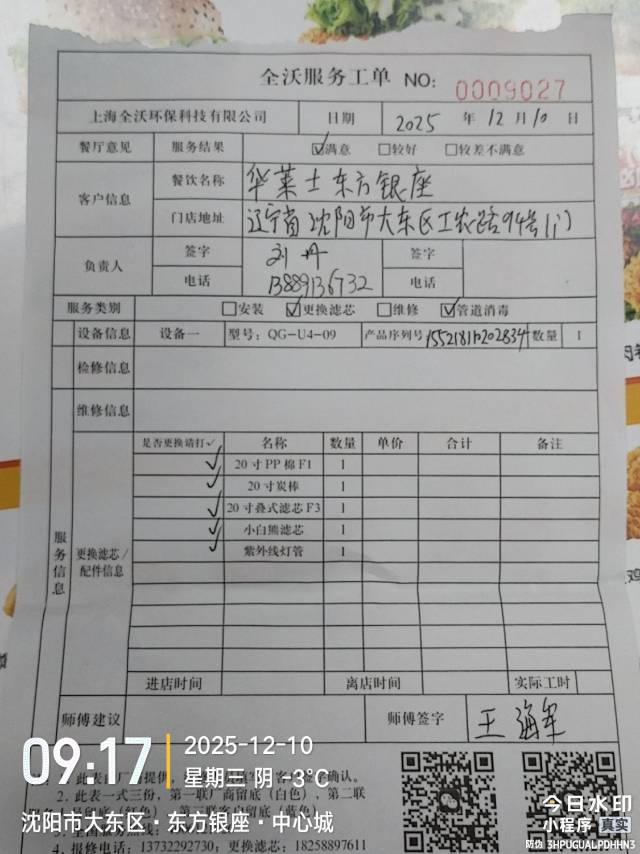 全沃服务工单 NO: 0009027
上海全沃环保科技有限公司 日期 2025 年 12 月 10 日
餐厅意见 服务结果 ☑满意 □较好 □较差不满意
客户信息 餐饮名称 华莱士东方银座
门店地址 辽宁省沈阳市大东区工农路94号(1门)
负责人 签字 刘丹 签字
电话 13889136732 电话
服务类别 □安装 ☑更换滤芯 □维修 ☑管道消毒
设备信息 设备一 型号: QG-U4-09 产品序列号 数量 1
检修信息
维修信息
服务信息
更换滤芯/配件信息
是否更换请打✓ 名称 数量 单价 合计 备注
✓ 20寸PP棉F1 1
✓ 20寸炭棒 1
✓ 20寸叠式滤芯F3 1
✓ 小白熊滤芯 1
✓ 紫外线灯管 1
进店时间 离店时间 实际工时
师傅建议 师傅签字 王海军
2. 此表一式三份，第一联厂商留底（白色），第二联
4. 报修电话：13732292730; 更换滤芯电话：18258897611
09:17
2025-12-10
星期三 阴 -3℃
沈阳市大东区·东方银座·中心城
今日水印
小程序 真实
防伪 3HPUGUALPDHHN3